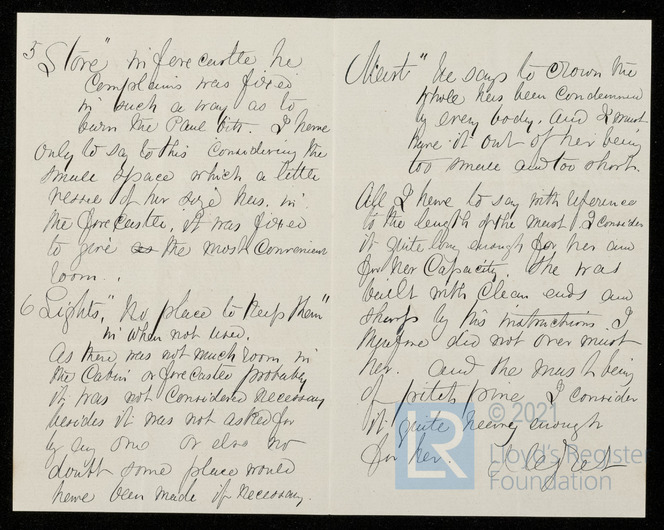 5 Stove" in forecastle he
complains was fixed
in such a way as to
burn the Paul bits. I have
only to say to this considering the
small space which a little
vessel of her size has in
the forecastle, it was fixed
to give as the most convenient
room.
6 Lights," no place to keep them"
in when not used.
As there was not much room in
the Cabin or forecastle probably
it was not considered necessary
besides it was not asked for
by any one or else no
doubt some place would
have been made if necessary.
Mast" he says to crown the
whole has been condemned
by every body, and I must
have it out of her being
too small and too short.
All I have to say with reference
to the length of the mast. I consider
it quite long enough for her and
for her Capacity. She was
built with clean ends and
sharp by his instructions. I
therefore did not over mast
her. and the mast being
of pitch pine I consider
it quite heavy enough
for her.
© 2021
LR
Lloyd's Register
Foundation